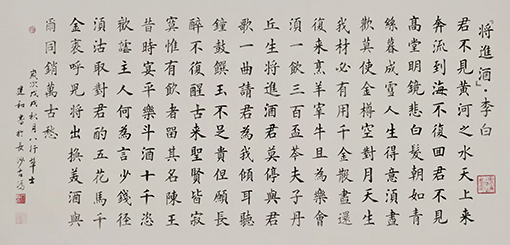 『將進酒』·李白
君不見黃河之水天上來
奔流到海不復回君不見
高堂明鏡悲白髮朝如青
絲暮成雪人生得意須盡
歡莫使金樽空對月天生
我材必有用千金散盡還
復來烹羊宰牛且為樂會
須一飲三百盃岑夫子丹
丘生將進酒君莫停與君
歌一曲請君為我傾耳聽
鐘鼓饌玉不足貴但願長
醉不復醒古來聖賢皆寂
寞惟有飲者留其名陳王
昔時宴平樂斗酒十千恣
歡謔主人何為言少錢徑
須沽取對君酌五花馬千
金裘呼兒將出換美酒與
爾同銷萬古愁
歲次戊戌秋月八行草士
建和書於長沙